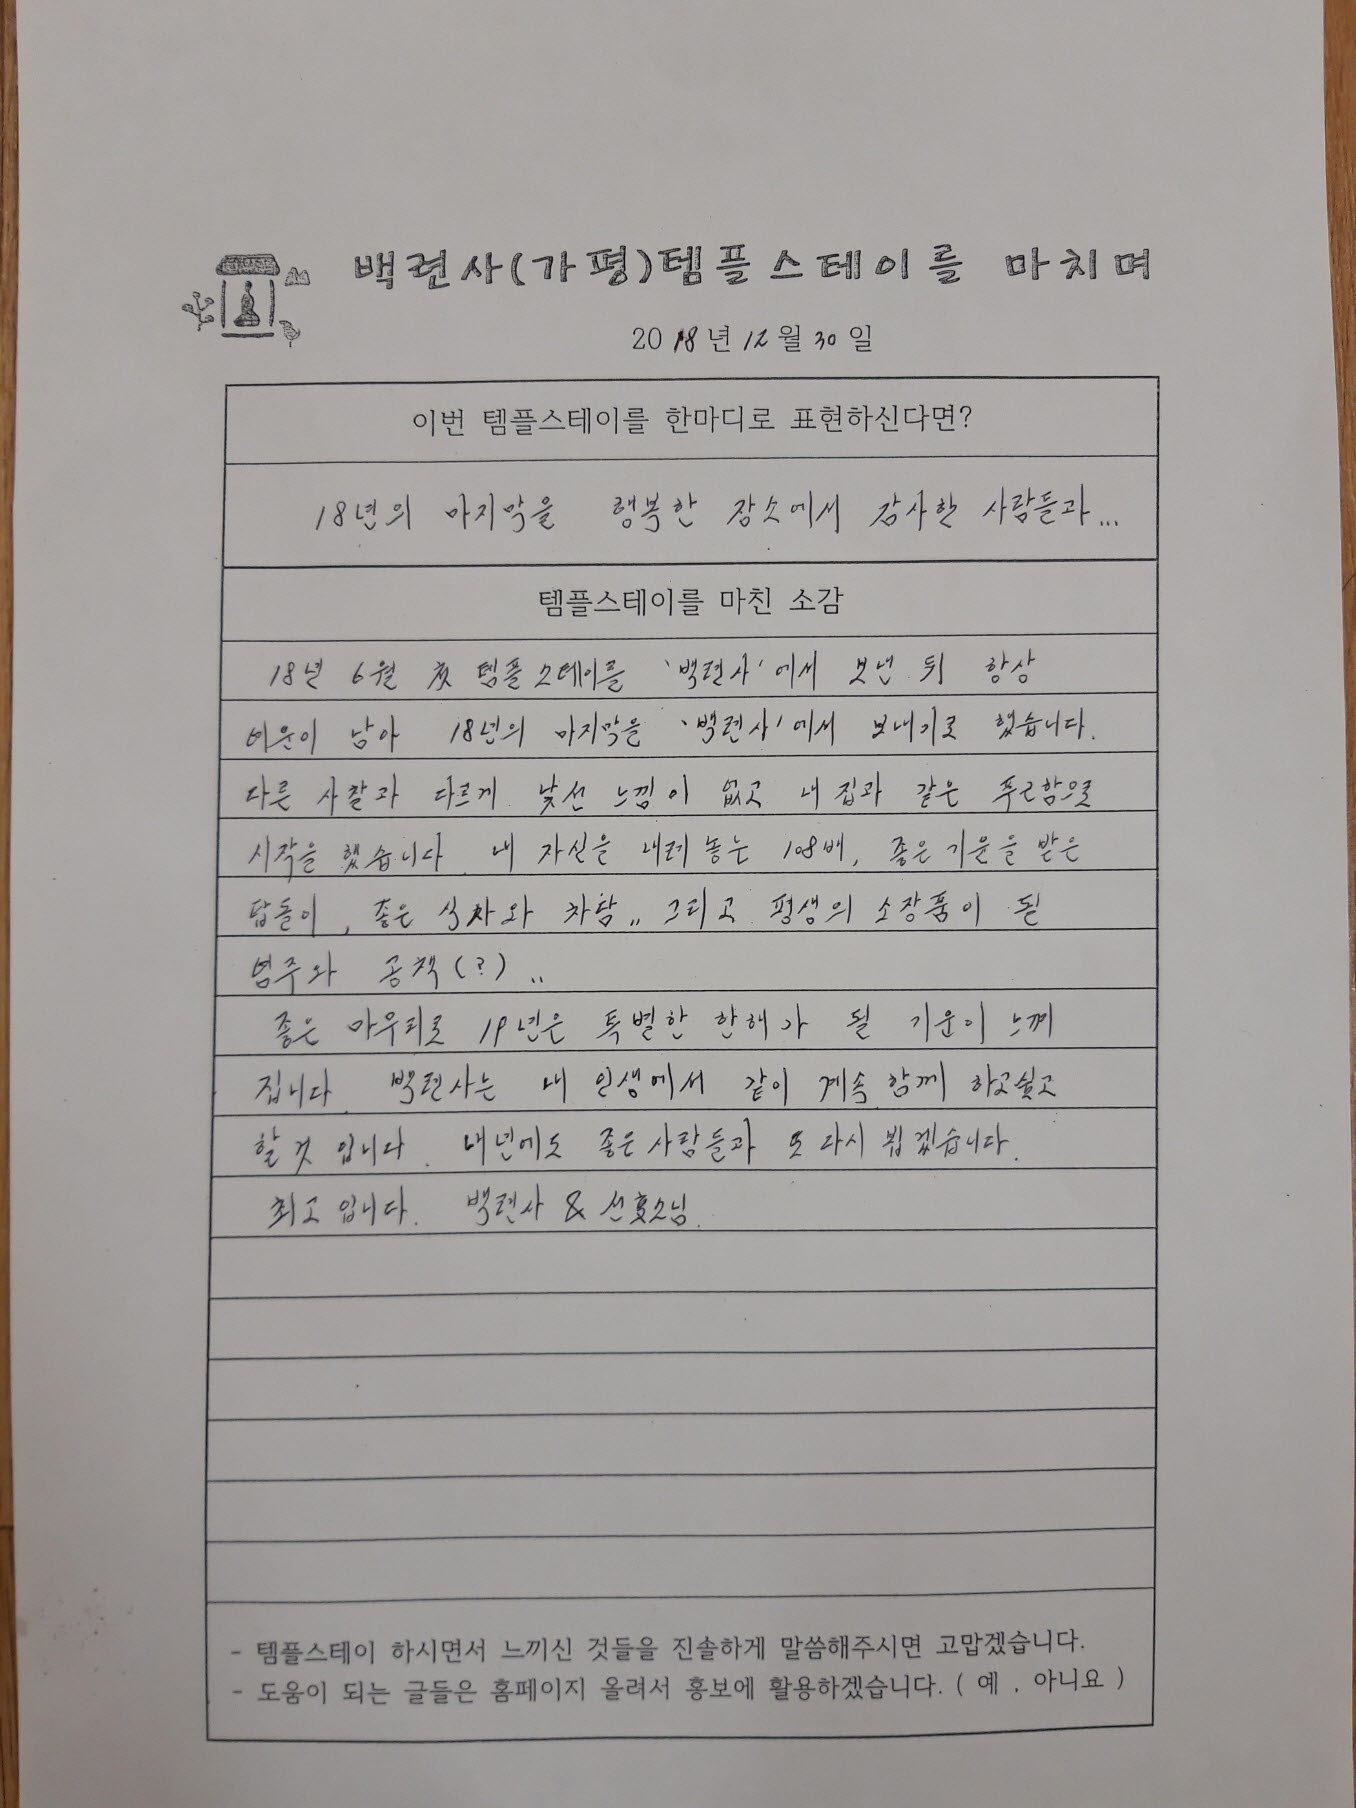 백련사(가평)템플스테이를 마치며
2018년 12월 30일
이번 템플스테이를 한마디로 표현하신다면?
18년의 마지막을 행복한 장소에서 감사한 사람들과...
템플스테이를 마친 소감
18년 6월 友 템플스테이를 '백련사'에서 보낸 뒤 항상
여운이 남아 18년의 마지막을 '백련사'에서 보내기로 했습니다.
다른 사찰과 다르게 낯선 느낌이 없고 내 집과 같은 푸근함으로
시작을 했습니다. 내 자신을 내려 놓는 108배, 좋은 기운을 받은
탑돌이, 좋은 식차와 차담.. 그리고 평생의 소장품이 될
염주와 공책(?)..
좋은 마무리로 19년은 특별한 한해가 될 기운이 느껴
집니다. 백련사는 내 인생에서 같이 계속 함께 하고싶고
할 것 입니다. 내년에도 좋은 사람들과 또 다시 뵙겠습니다.
최고 입니다. 백련사 &
- 템플스테이 하시면서 느끼신 것들을 진솔하게 말씀해주시면 고맙겠습니다.
- 도움이 되는 글들은 홈페이지 올려서 홍보에 활용하겠습니다. ( 예 , 아니요 )